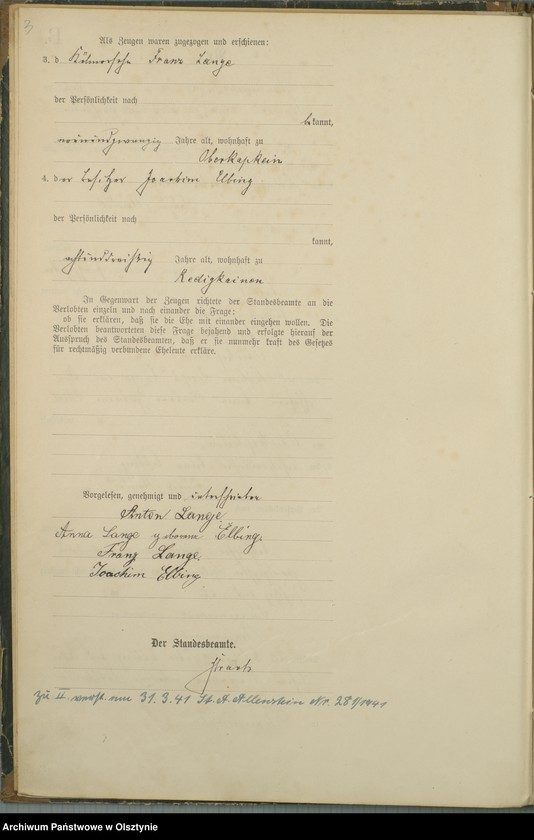 3
Als Zeugen waren zugezogen und erschienen:
3. d Kölmersohn Franz Lange
der Persönlichkeit nach
bekannt,
neunundzwanzig Jahre alt, wohnhaft zu
Oberkapkeim
4. der Besitzer Joachim Elbing
der Persönlichkeit nach
kannt,
achtunddreißig Jahre alt, wohnhaft zu
Redigkainen
In Gegenwart der Zeugen richtete der Standesbeamte an die
Verlobten einzeln und nach einander die Frage:
ob sie erklären, daß sie die Ehe mit einander eingehen wollen. Die
Verlobten beantworteten diese Frage bejahend und erfolgte hierauf der
Ausspruch des Standesbeamten, daß er sie nunmehr kraft des Gesetzes
für rechtmäßig verbundene Eheleute erkläre.
Vorgelesen, genehmigt und unterschrieben
Anton Lange
Anna Lange geborene Elbing.
Franz Lange.
Joachim Elbing
Der Standesbeamte.
zu II verst. am 31.3.41 St. A. Allenstein Nr. 281/1941
Archiwum Państwowe w Olsztynie